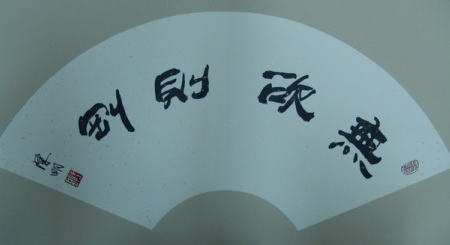 無欲則剛